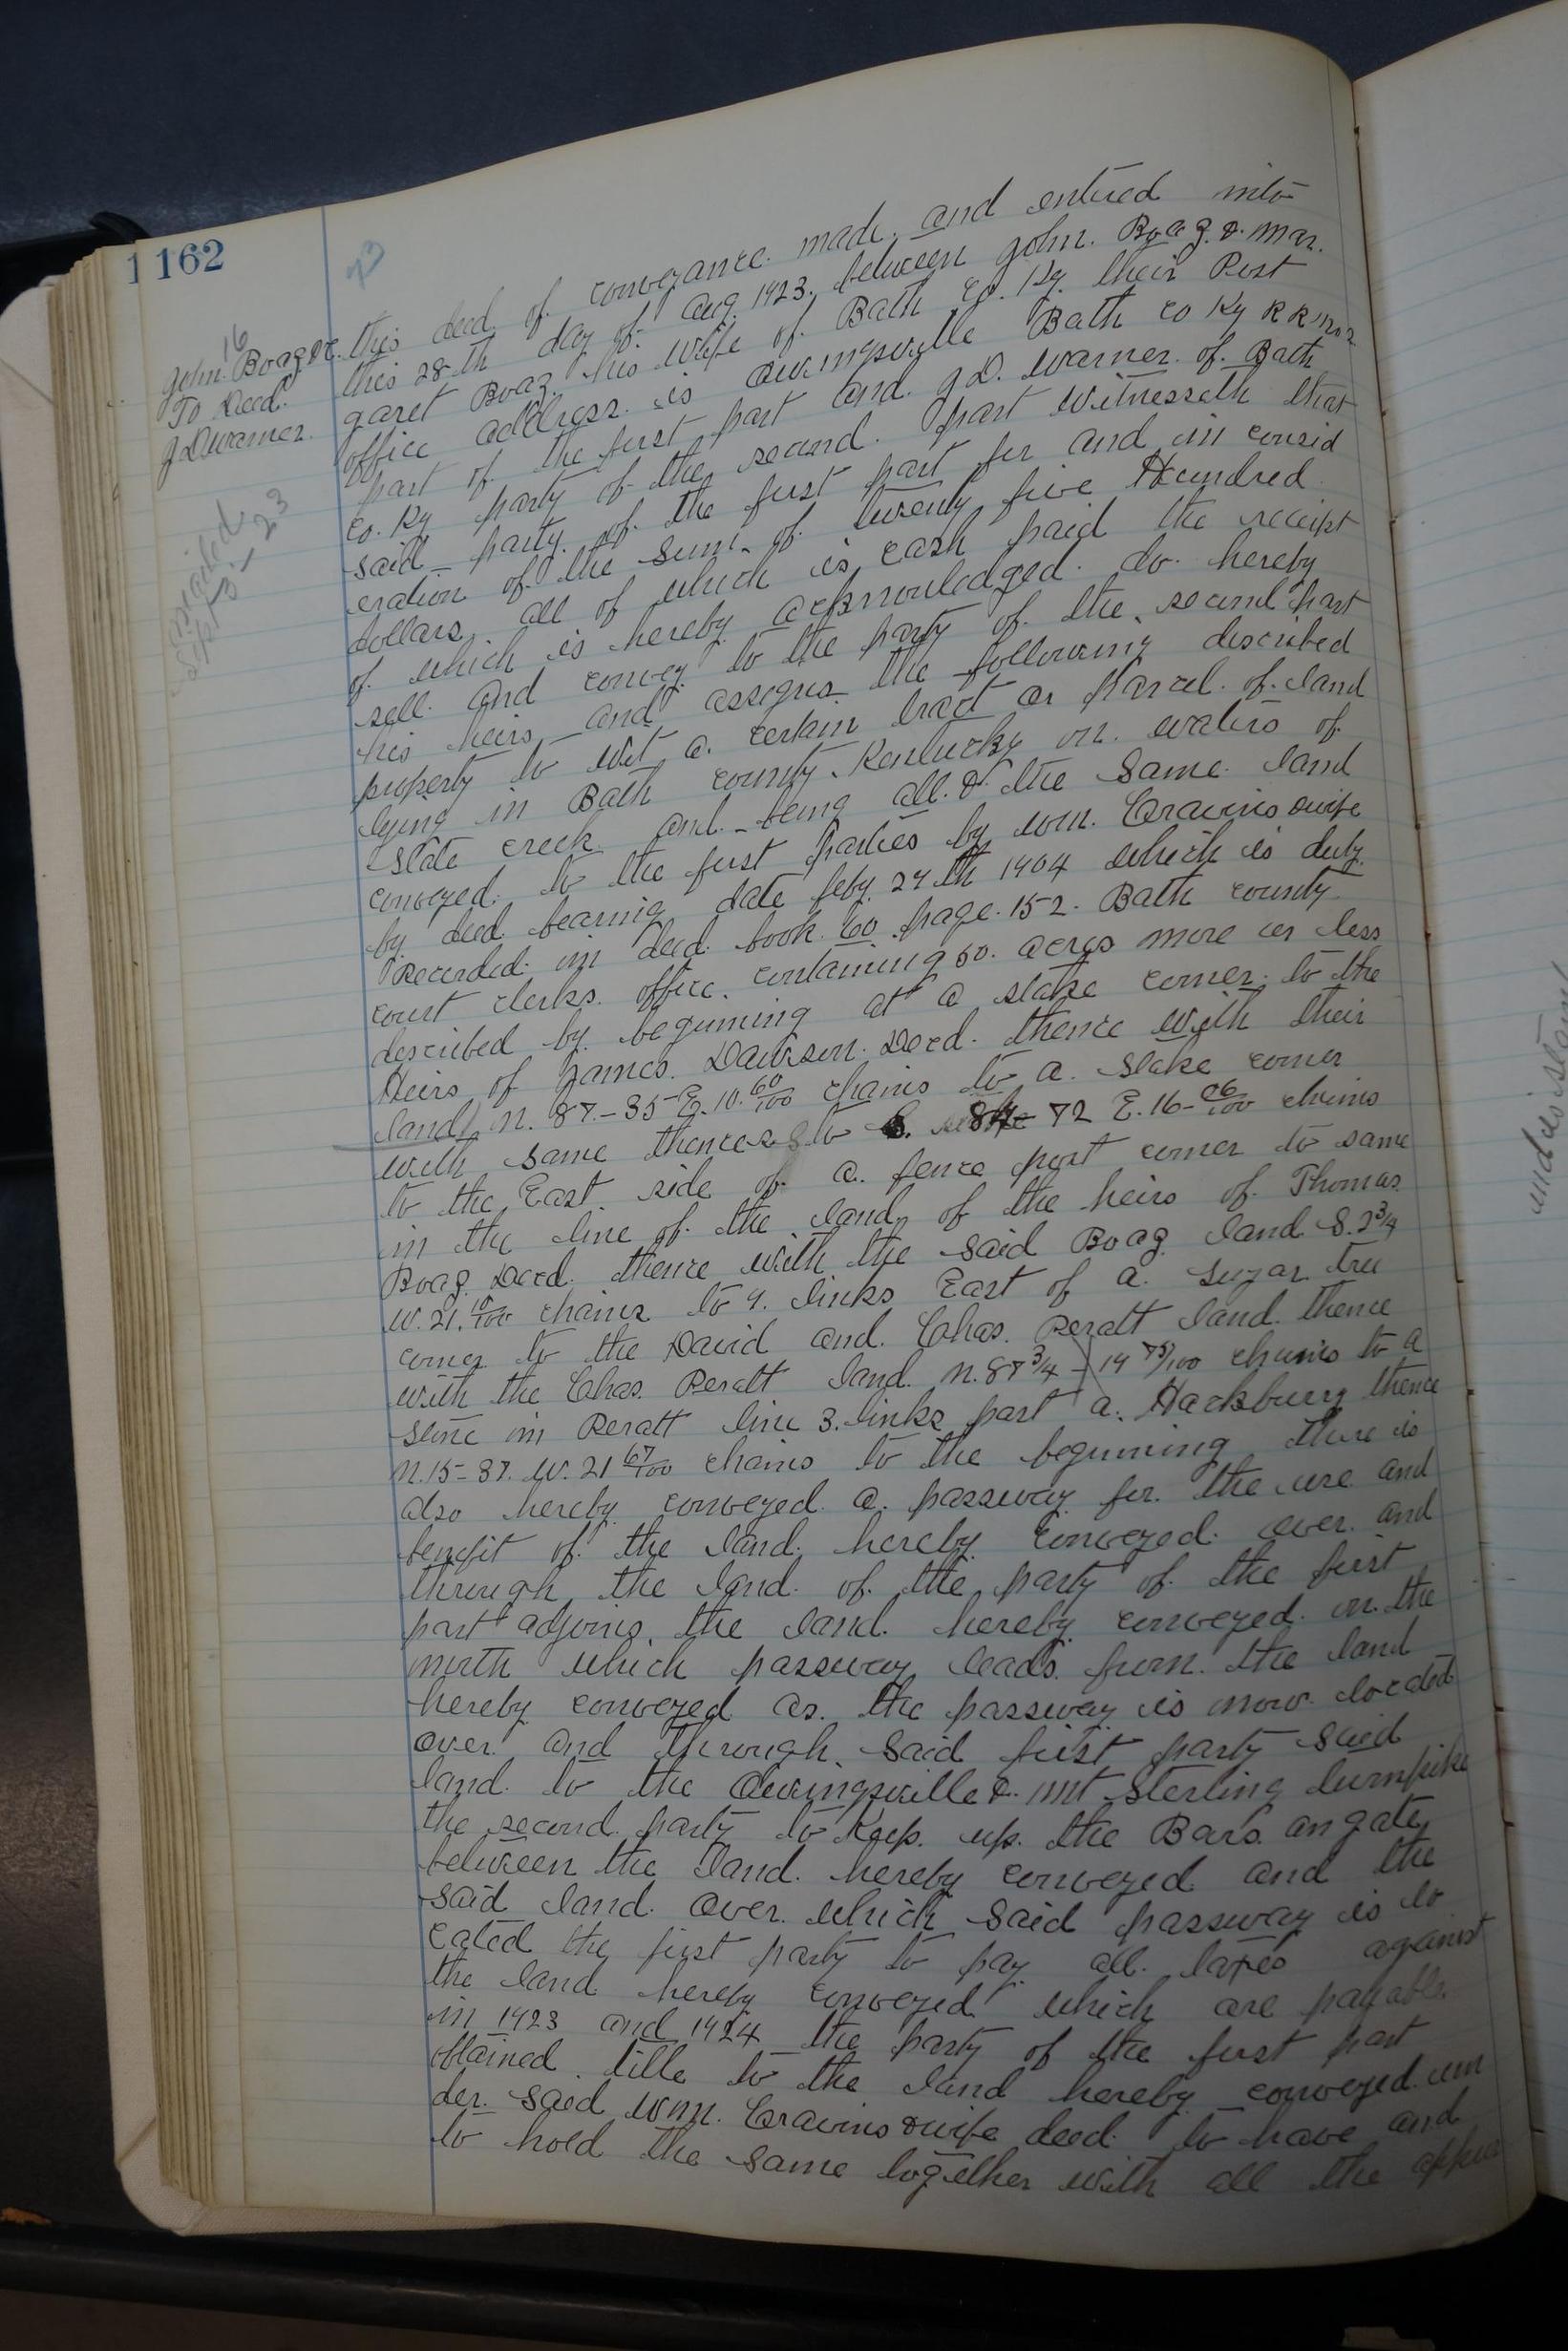 162
16
John Boaz &c.
To Deed
J D Warner.
mailed
Sept 5-23
this deed of conveyance made and entered into
this 28th day of Aug. 1923. between John. Boaz. & Mar.
garet Boaz his wife of Bath Co. Ky. their Post
office address is Owingsville Bath Co Ky R R no 2
part of the first part and J D. Warner of Bath
Co. Ky party of the second part Witnesseth that
said party of the first part for and in consid
eration of the sum of twenty five Hundred
dollars all of which is cash paid the receipt
of which is hereby acknowledged do hereby
sell and convey to the party of the second part
his heirs and assigns the following described
property to wit a certain tract or parcel of land
lying in Bath county Kentucky on waters of
Slate creek and being all of the same land
conveyed to the first parties by Wm. Cravins & wife
by deed bearing date feby 27th 1904 which is duly
Recorded in deed book 60 page 152. Bath county
court clerks office containing 50. acres more or less
described by beginning at a stake corner to the
Heirs of James Dawson Decd. thence with their
land N. 87.-35 E. 10. 60/100 chains to a stake corner
with same thence S 84- 72 E. 16- 06/100 chains
to the East side of a fence post corner to same
in the line of the land of the heirs of Thomas
Boaz Decd. thence with the said Boaz land S. 2 3/4
W. 21. 10/100 chains to 9. links East of a sugar tree
corner to the David and Chas. Peratt land thence
with the Chas. Peratt land N. 87 3/4 - 19 75/100 chains to a
stone in Peratt line 3. links past a Hackburry thence
N. 15- 87. W. 21 67/100 chains to the beginning there is
also hereby conveyed a passway for the use and
benefit of the land hereby conveyed over and
through the land of the party of the first
part adjoins the land hereby conveyed on the
north which passway leads from the land
hereby conveyed as the passway is now located
over and through said first party said
land to the Owingsville & Mt Sterling turnpike
the second party to Keep up the Bars an gate
between the land hereby conveyed and the
said land over which said passway is lo
cated the first party to pay all taxes against
the land hereby conveyed which are payable
in 1923 and 1924 the party of the first part
obtained title to the land hereby conveyed un
der said Wm. Cravins & wife deed to have and
to hold the same together with all the appur